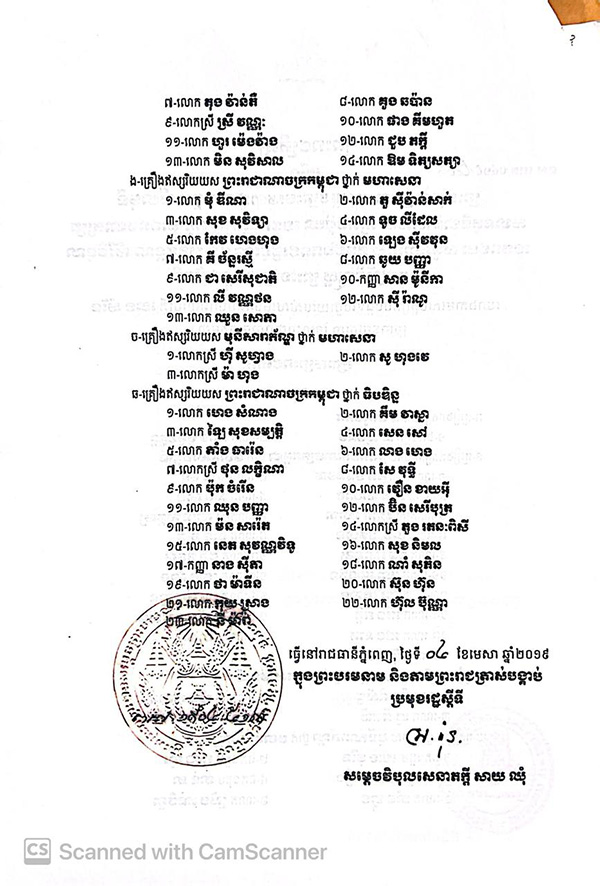 ៧-លោក តុង វ៉ាន់តឺ ៨-លោក គូង ឆប៉ាន
៩-លោកស្រី ស្រី វណ្ណៈ ១០-លោក ផាង គឹមហួត
១១-លោក ហួរ ម៉េងវ៉ាង ១២-លោក ជួប ភក្តី
១៣-លោក មិន សុវិសាល ១៤-លោក ឱម ទិត្យសត្យា
ង-គ្រឿងឥស្សរិយយស ព្រះរាជាណាចក្រកម្ពុជា ថ្នាក់ មហាសេនា
១-លោក មុំ ឌីណា ២-លោក តូ ស៊ីវ៉ាន់សាក់
៣-លោក សុខ សុវិទ្យា ៤-លោក ទូច លីដែល
៥-លោក កែវ ហេងហុង ៦-លោក ឡេង ស៊ីវធុន
៧-លោក គី ច័ន្ទរស្មី ៨-លោក ឆូយ បញ្ញា
៩-លោក ជា សេរីសុជាតិ ១០-កញ្ញា សាន ម៉ូនីកា
១១-លោក លី វណ្ណថន ១២-លោក ស៊ី រ៉ាណូ
១៣-លោក ឈួន សោភា
ច-គ្រឿងឥស្សរិយយស មុនីសារាភ័ណ្ឌ ថ្នាក់ មហាសេនា
១-លោកស្រី ហ៊ី សូហ្វាង ២-លោក សូ ហុងវេ
៣-លោកស្រី ម៉ា ហុង
ឆ-គ្រឿងឥស្សរិយយស ព្រះរាជាណាចក្រកម្ពុជា ថ្នាក់ ធិបឌិន្ទ
១-លោក ហេង សំណាង ២-លោក គឹម វាស្នា
៣-លោក ឡៃ សុខសម្បត្តិ ៤-លោក សេន សៅ
៥-លោក តាំង ធារ៉េន ៦-លោក លាង ហេង
៧-លោកស្រី ថុន លក្ខិណា ៨-លោក សែ វុទ្ធី
៩-លោក ប៉ុក ចំរើន ១០-លោក តឿន ខាយអ៊ី
១១-លោក ឈុន បញ្ញា ១២-លោក ប៊ិន សេរីបុត្រ
១៣-លោក ម៉ន សារ៉េត ១៤-លោកស្រី តូង រតនៈពិសី
១៥-លោក នេត សុវណ្ណវិទូ ១៦-លោក សុខ និមល
១៧-កញ្ញា នាង ស៊ីតា ១៨-លោក ណាំ សុភិន
១៩-លោក ថា ម៉ាទីន ២០-លោក ស៊ុន ហ៊ុន
២១-លោក កួយ ស្រាង ២២-លោក ហ៊ុល ប៊ុណ្ណា
២៣-លោក
ធ្វើនៅរាជធានីភ្នំពេញ, ថ្ងៃទី ០៤ ខែមេសា ឆ្នាំ២០១៩
ក្នុងព្រះបរមនាម និងតាមព្រះរាជត្រាស់បង្គាប់
ប្រមុខរដ្ឋស្តីទី
សម្តេចវិបុលសេនាភក្តី សាយ ឈុំ
CS Scanned with CamScanner